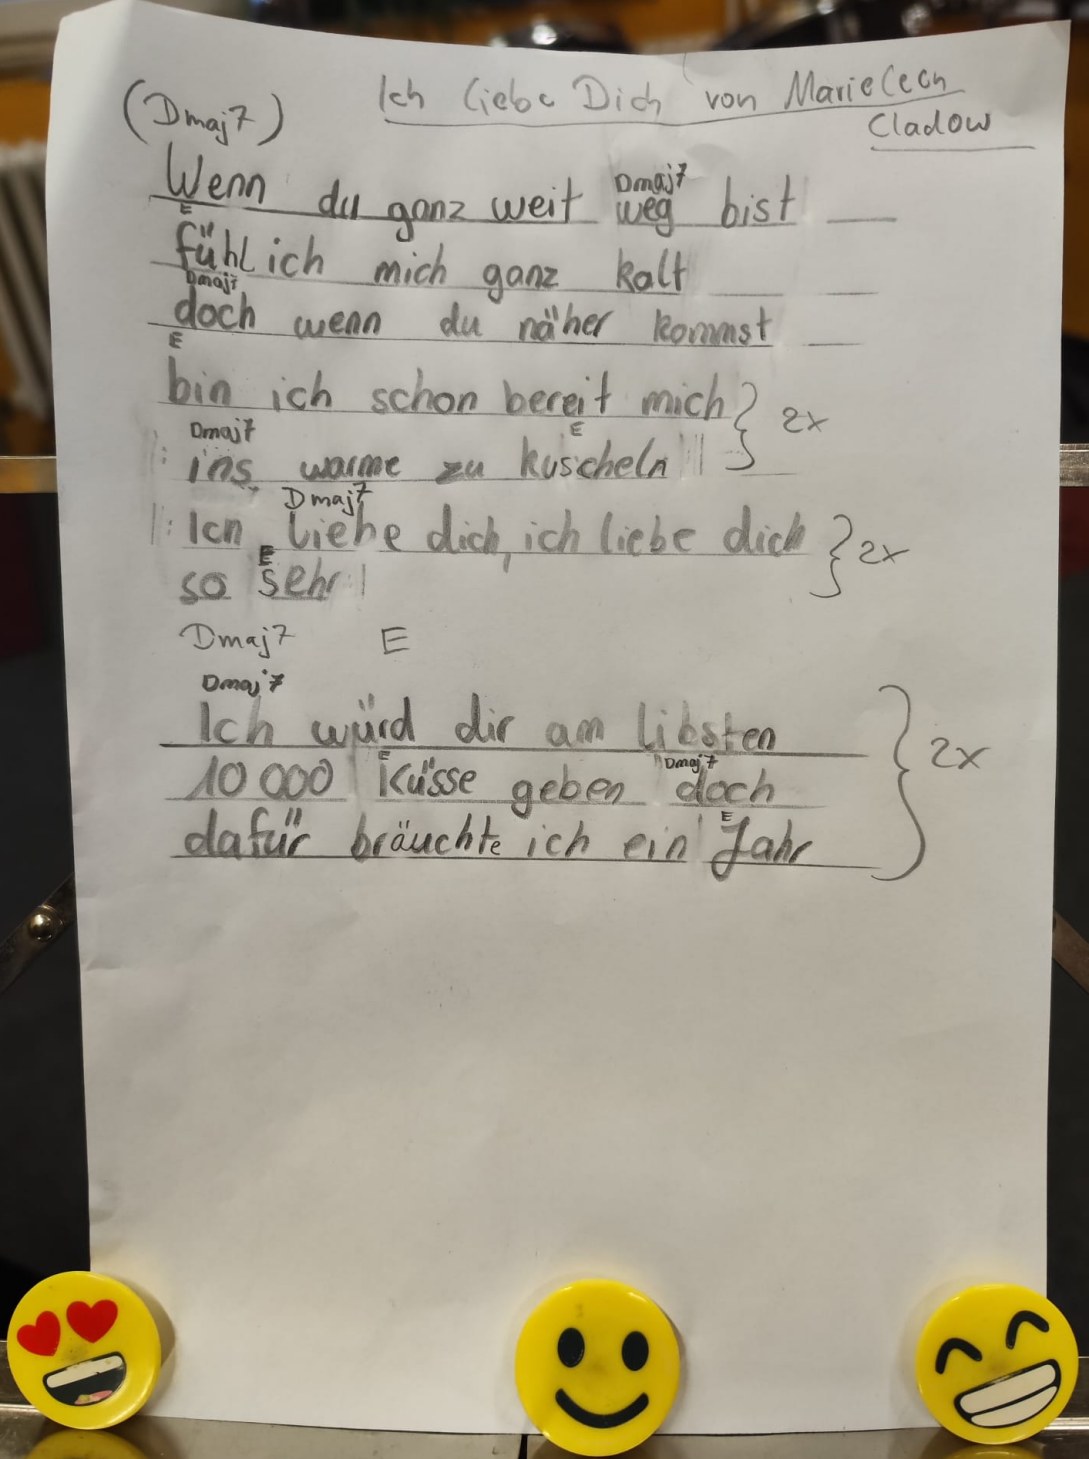 (Dmaj7) Ich liebe Dich von Marieleen
Cladow
Dmaj7
Wenn du ganz weit weg bist
E
fühl ich mich ganz kalt
Dmaj7
doch wenn du näher kommst
E
bin ich schon bereit mich } 2x
Dmaj7 E
|: ins warme zu kuscheln :|
Dmaj7
|: Ich liebe dich, ich liebe dich } 2x
E
so sehr :|
Dmaj7 E
Dmaj7
Ich würd dir am libsten
E Dmaj7
10 000 Küsse geben doch } 2x
E
dafür bräuchte ich ein Jahr